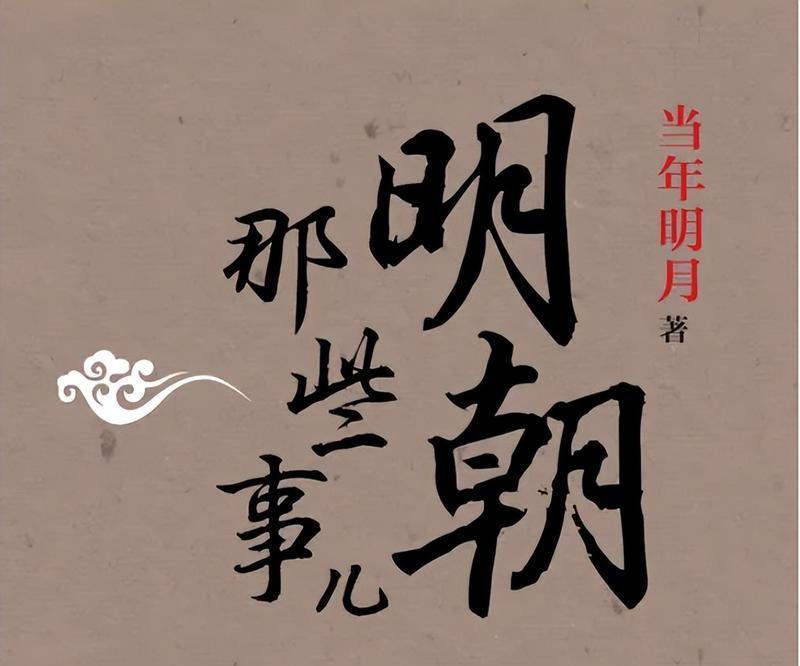 当年明月 著
明朝
那些事儿